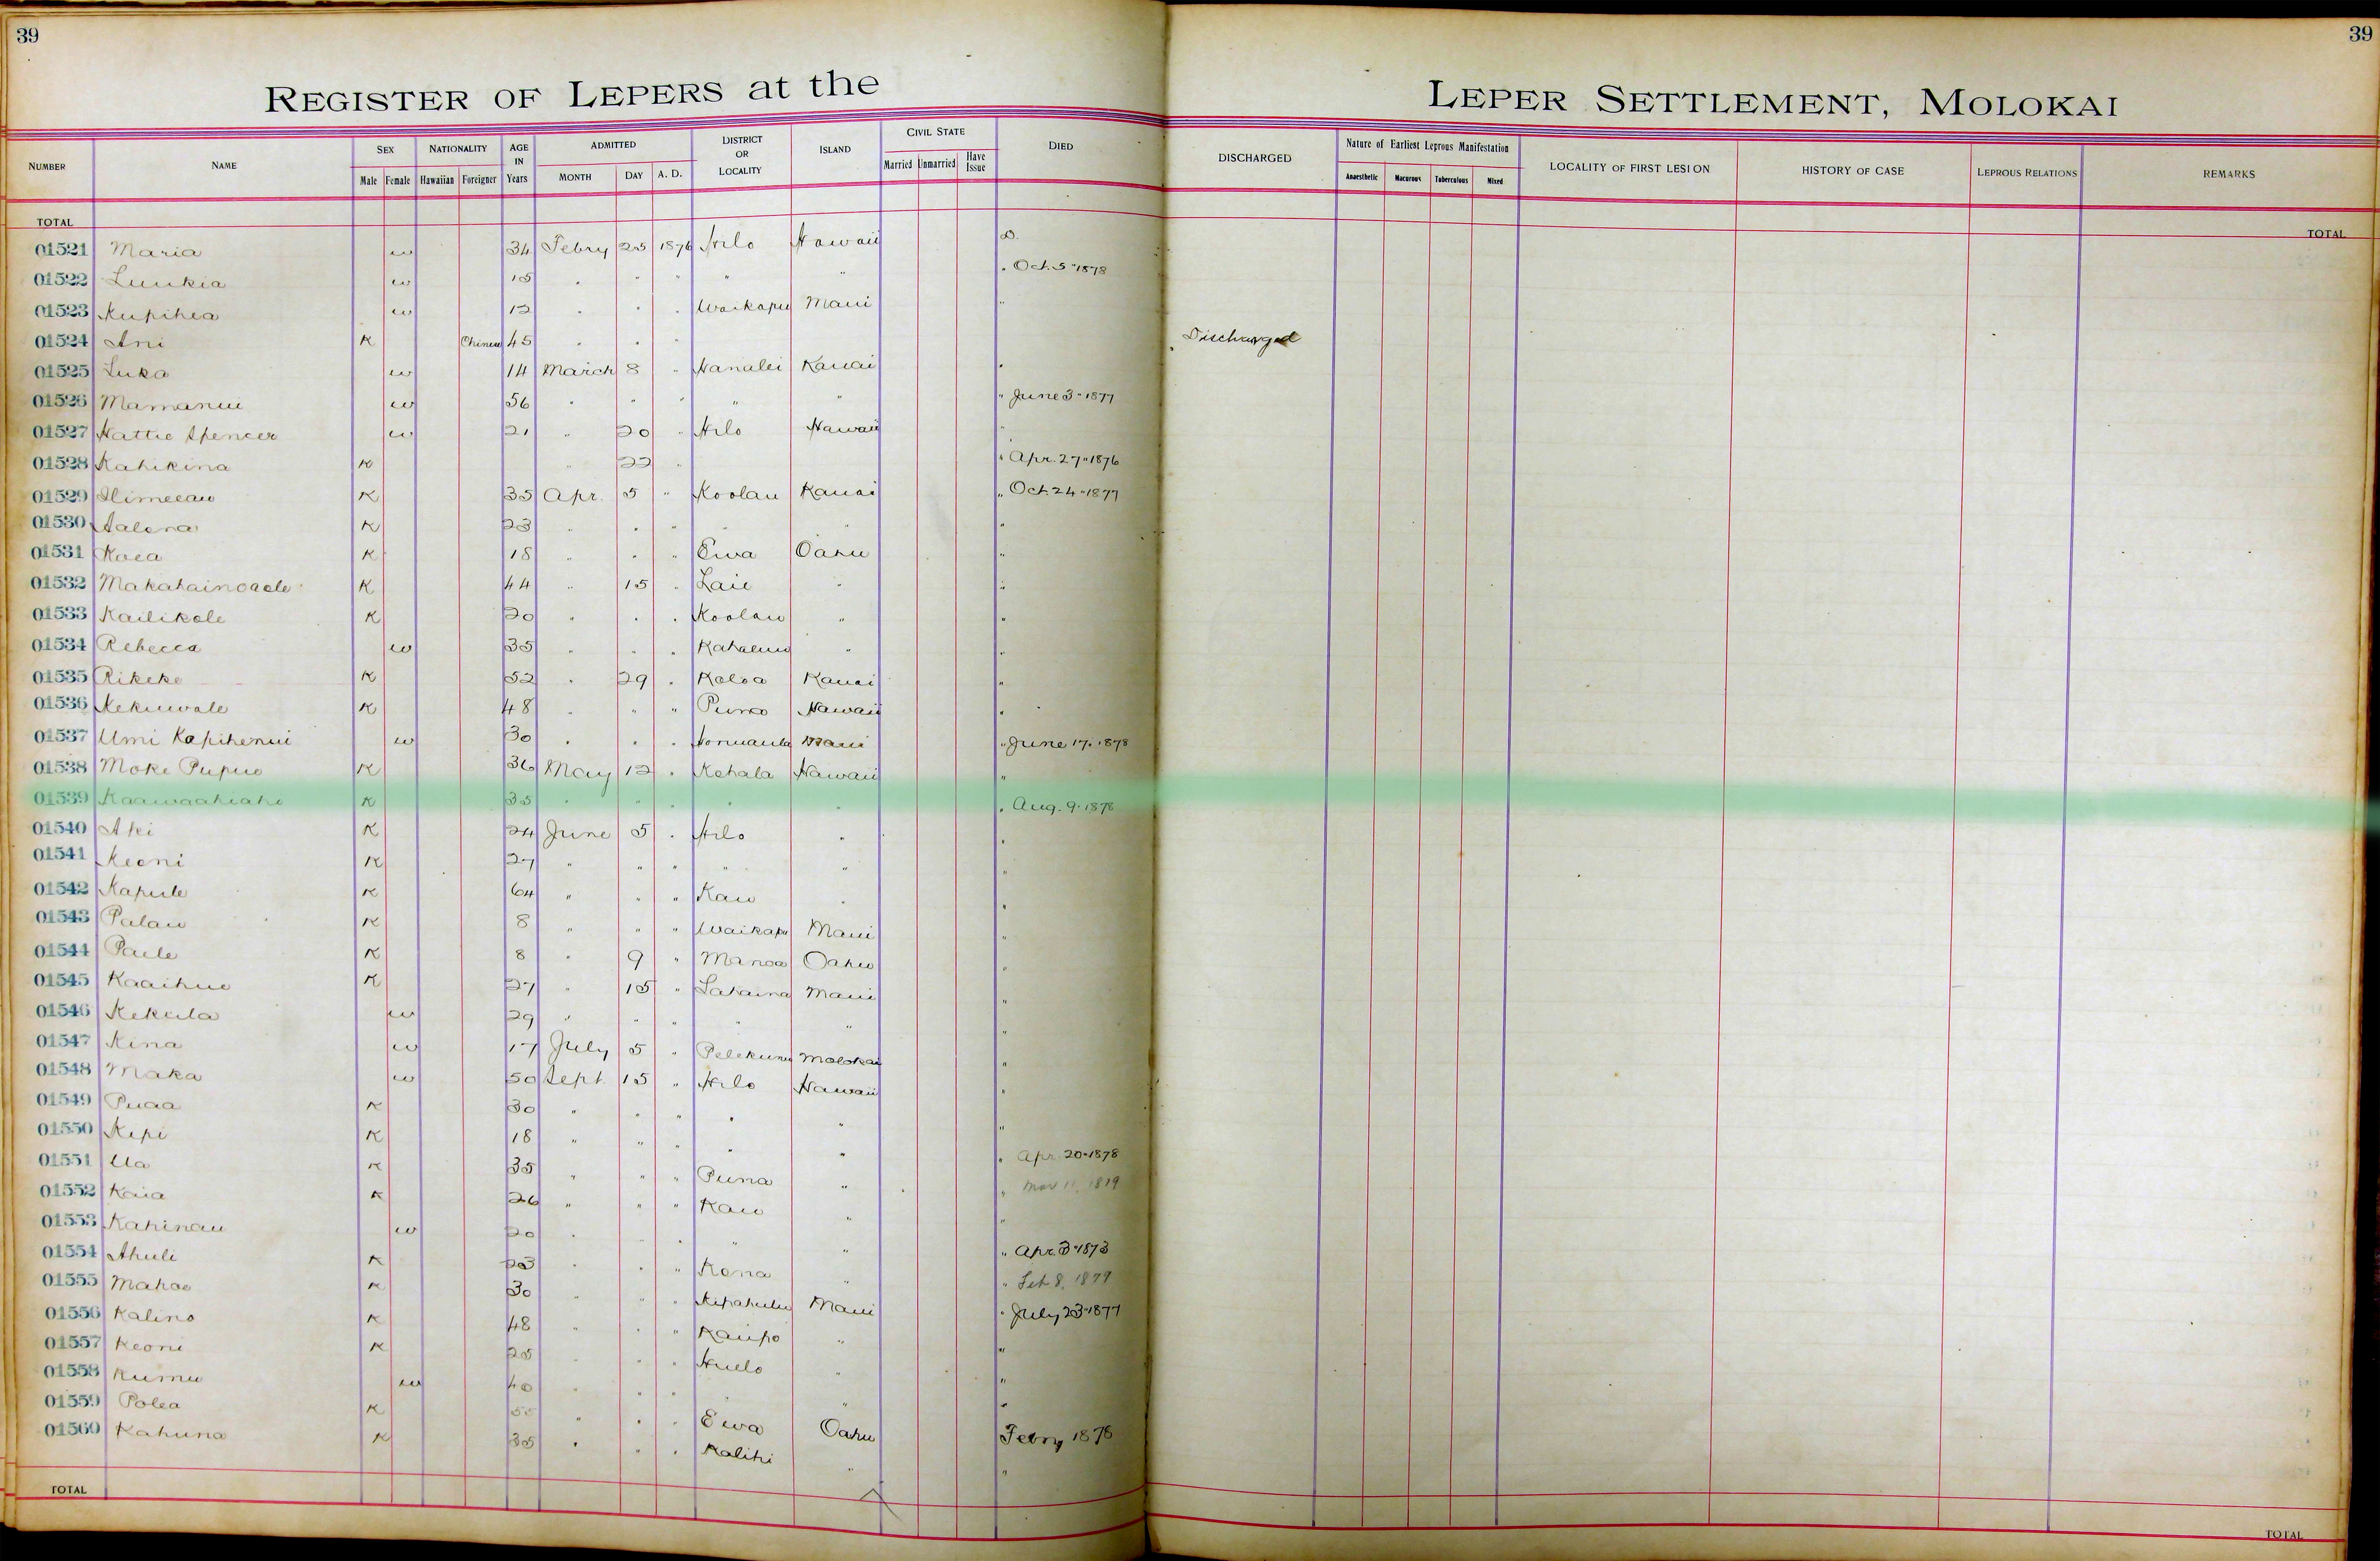 39 39
REGISTER OF LEPERS at the LEPER SETTLEMENT, MOLOKAI
NUMBER NAME SEX Male Female NATIONALITY Hawaiian Foreigner AGE IN Years ADMITTED MONTH DAY A. D. DISTRICT OR LOCALITY ISLAND CIVIL STATE Married Unmarried Have Issue DIED DISCHARGED Nature of Earliest Leprous Manifestation Anaesthetic Macurous Tuberculous Mixed LOCALITY OF FIRST LESION HISTORY OF CASE LEPROUS RELATIONS REMARKS
TOTAL TOTAL
01521 Maria w 34 Febry 25 1876 Hilo Hawaii D.
01522 Luukia w 15 " " " " " " Oct. 5 " 1878
01523 Kupihea w 12 " " " Waikapu Maui "
01524 Ani K Chinese 45 " " " Discharged
01525 Luka w 14 March 8 " Hanalei Kauai "
01526 Mamanui w 56 " " " " " " June 3 - 1877
01527 Hattie Spencer w 21 " 20 " Hilo Hawaii "
01528 Kahikina K " 22 " " Apr. 27 " 1876
01529 K 35 Apr. 5 " Koolau Kauai " Oct. 24 - 1877
01530 K 23 " " " " " "
01531 Koea K 18 " " " Ewa Oahu "
01532 K 44 " 15 " Laie " "
01533 Kailikole K 20 " " " Koolau " "
01534 Rebecca w 35 " " " " "
01535 Rikeke K 52 " 29 " Koloa Kauai "
01536 Kekuwale K 48 " " " Puna Hawaii "
01537 Umi Kapihenui w 30 " " " Honuaula Maui " June 17. 1878
01538 Moke Pupuo K 36 May 12 " Kohala Hawaii "
01539 K 35 " " " " " " Aug. 9. 1878
01540 Aki K 24 June 5 " Hilo " "
01541 Keoni K 27 " " " " " "
01542 Kapule K 64 " " " Kau " "
01543 Palau K 8 " " " Waikapu Maui "
01544 Paule K 8 " 9 " Manoa Oahu "
01545 Kaaihue K 27 " 15 " Lahaina Maui "
01546 Kekula w 29 " " " " " "
01547 Kina w 17 July 5 " Pelekunu Molokai "
01548 Maka w 50 Sept. 15 " Hilo Hawaii "
01549 Puaa K 30 " " " " " "
01550 Kepi K 18 " " " " " "
01551 Ua K 35 " " " Puna " " Apr. 20 - 1878
01552 Kaia K 26 " " " Kau " "
01553 Kahinau w 20 " " " " " "
01554 Ahuli K 23 " " " Kona " " Apr. 3 - 1873
01555 Mahoe K 30 " " " Kipahulu Maui " Feb 8. 1879
01556 Kalino K 48 " " " Kaupo " " July 23 - 1877
01557 Keoni K 25 " " " Huelo " "
01558 Kumu w 40 " " " " " "
01559 Polea K 55 " " " Ewa Oahu "
01560 Kahuna K 35 " " " Kalihi " Febry 1878
TOTAL TOTAL